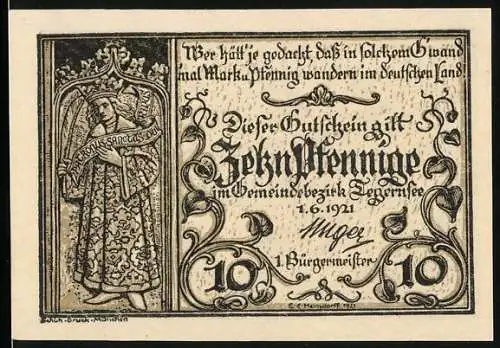 Wer hätt' je gedacht daß in solchem G'wand
mal Mark u. Pfennig wandern im deutschen Land.
Dieser Gutschein gilt
Zehn Pfennige
im Gemeindebezirk Tegernsee
1.6.1921
1. Bürgermeister
10 10